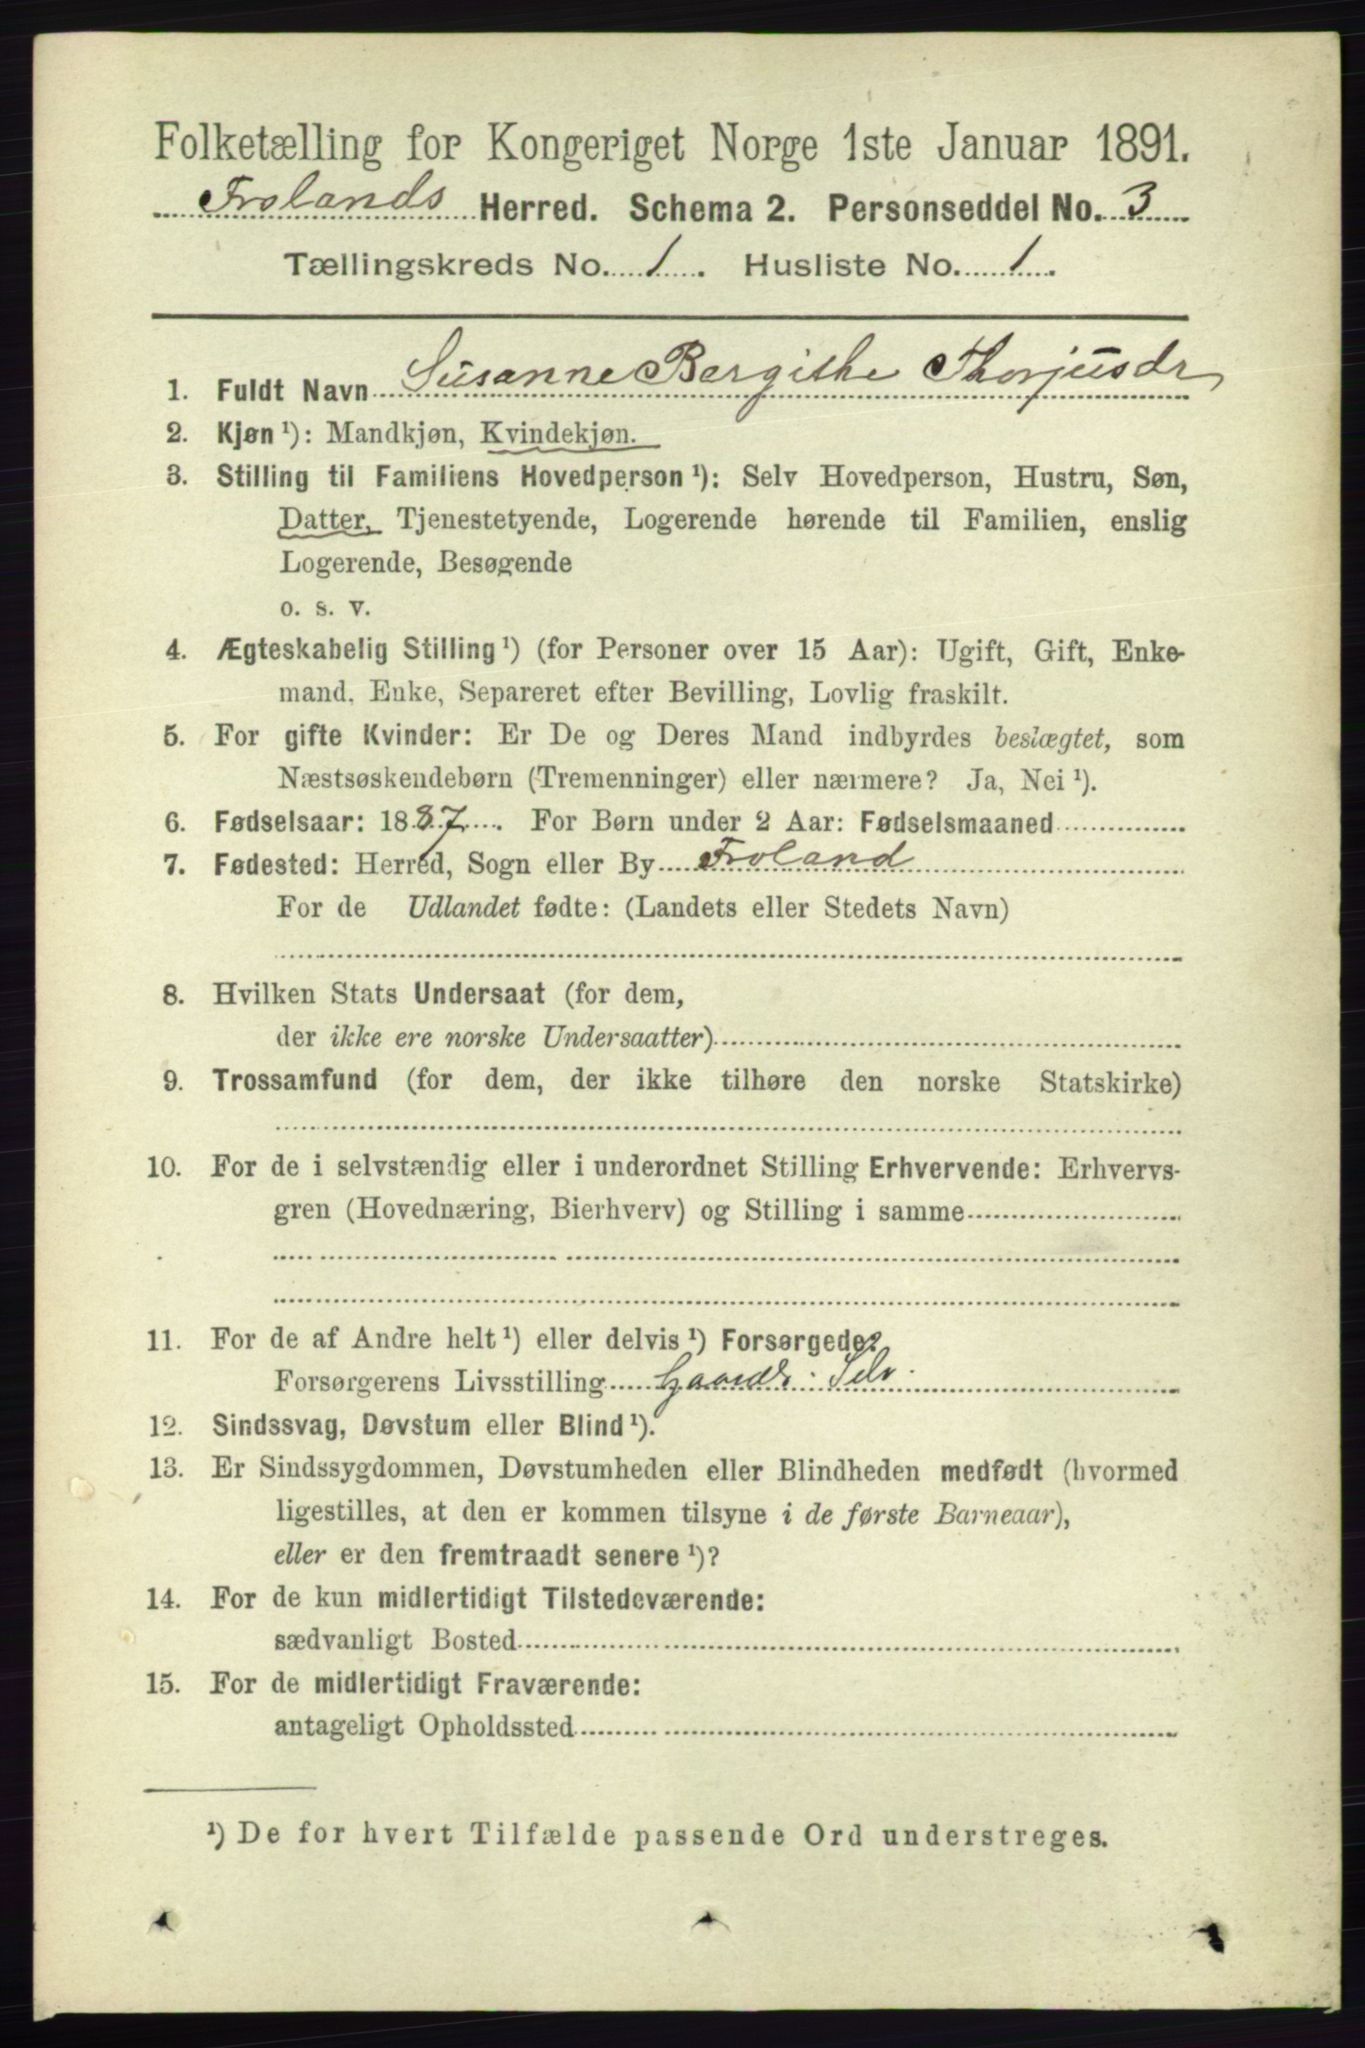 Folketælling for Kongeriget Norge 1ste Januar 1891.
Frolands Herred. Schema 2. Personseddel No. 3
Tællingskreds No. 1. Husliste No. 1.
1. Fuldt Navn Susanne Bergithe Thorjusdr
2. Kjøn¹): Mandkjøn, Kvindekjøn.
3. Stilling til Familiens Hovedperson¹): Selv Hovedperson, Hustru, Søn,
Datter, Tjenestetyende, Logerende hørende til Familien, enslig
Logerende, Besøgende
o. s. v.
4. Ægteskabelig Stilling¹) (for Personer over 15 Aar): Ugift, Gift, Enke-
mand, Enke, Separeret efter Bevilling, Lovlig fraskilt.
5. For gifte Kvinder: Er De og Deres Mand indbyrdes beslægtet, som
Næstsøskendebørn (Tremenninger) eller nærmere? Ja, Nei¹).
6. Fødselsaar: 1887. For Børn under 2 Aar: Fødselsmaaned
7. Fødested: Herred, Sogn eller By Froland
For de Udlandet fødte: (Landets eller Stedets Navn)
8. Hvilken Stats Undersaat (for dem,
der ikke ere norske Undersaatter)
9. Trossamfund (for dem, der ikke tilhøre den norske Statskirke)
10. For de i selvstændig eller i underordnet Stilling Erhvervende: Erhvervs-
gren (Hovednæring, Bierhverv) og Stilling i samme
11. For de af Andre helt¹) eller delvis¹) Forsørgede:
Forsørgerens Livsstilling Gaardr: Selv.
12. Sindssvag, Døvstum eller Blind¹).
13. Er Sindssygdommen, Døvstumheden eller Blindheden medfødt (hvormed
ligestilles, at den er kommen tilsyne i de første Barneaar),
eller er den fremtraadt senere¹)?
14. For de kun midlertidigt Tilstedeværende:
sædvanligt Bosted
15. For de midlertidigt Fraværende:
antageligt Opholdssted
¹) De for hvert Tilfælde passende Ord understreges.